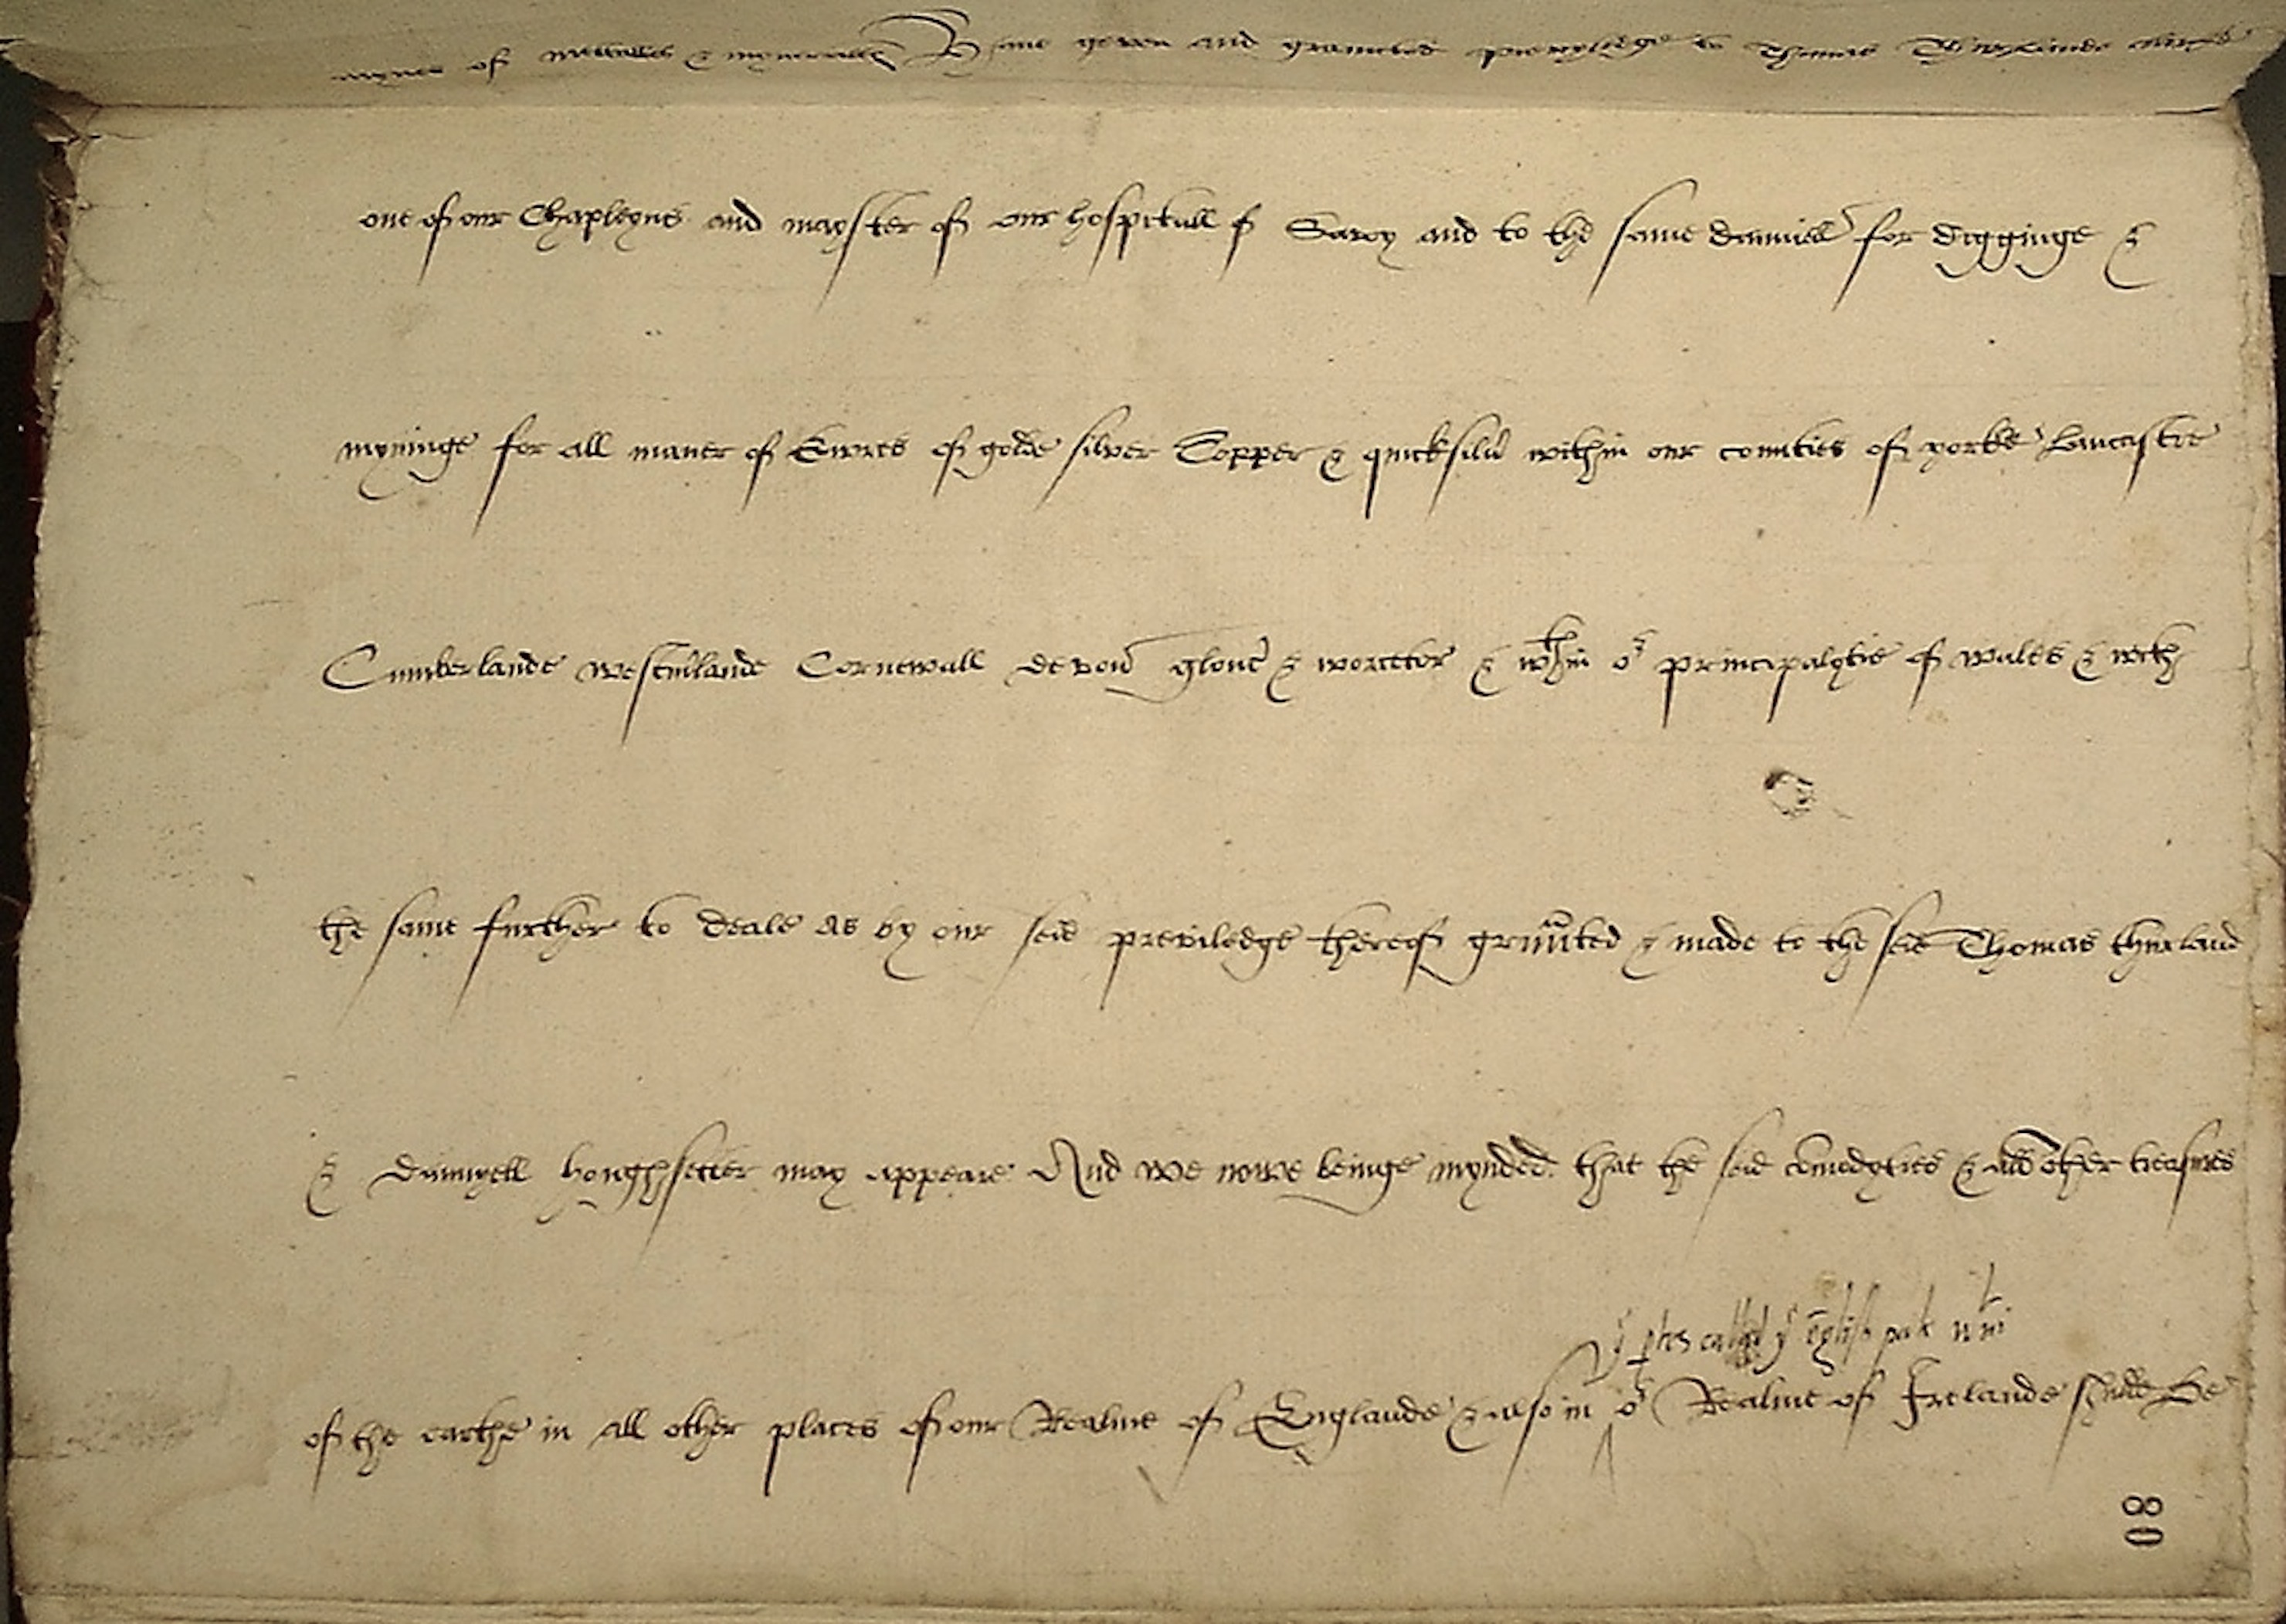 mynes of mettalles & myneralles Have geven and graunted previledge to Thomas Thurlande clerke
one of our Chapleyns and mayster of our hospitall of Savoy and to the same Danniell for digginge &
myninge for all maner of Ewres of golde silver Copper & quicksilv̄ within our counties of yorke Lancastre
Cumberlande westm̄lande Cornewall devon̄ glouc̄ & worcetor & wthin or principalytie of wales & with
the same further to deale as by our seid previledge thereof graunted & made to the seid Thomas thurland
& Dannyell houghsetter may appeare And we nowe beinge mynded that the seid com̄odyties & all other treasures
y ptes called y englysh pale wthin
of the earthe in all other places of our Realme of Englande & also in or Realme of Irelande shulde be
80